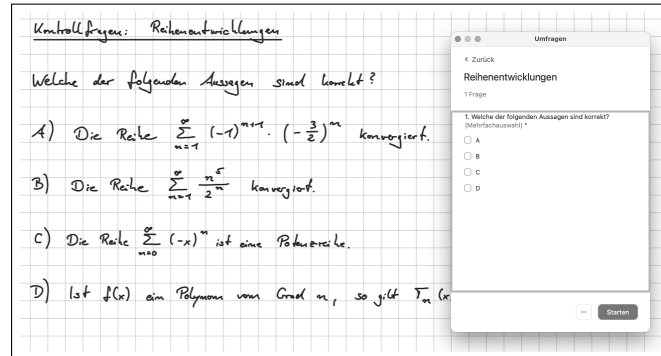 Kontrollfragen: Reihenentwicklungen
Welche der folgenden Aussagen sind korrekt?
A) Die Reihe ∑_{n=1}^{∞} (-1)^{n+1} · (-3/2)^n konvergiert.
B) Die Reihe ∑_{n=1}^{∞} n^5/2^n konvergiert.
C) Die Reihe ∑_{n=0}^{∞} (-x)^n ist eine Potenzreihe.
D) Ist f(x) ein Polynom vom Grad n, so gilt T_n (x
Umfragen
< Zurück
Reihenentwicklungen
1 Frage
1. Welche der folgenden Aussagen sind korrekt?
(Mehrfachauswahl) *
A
B
C
D
... Starten